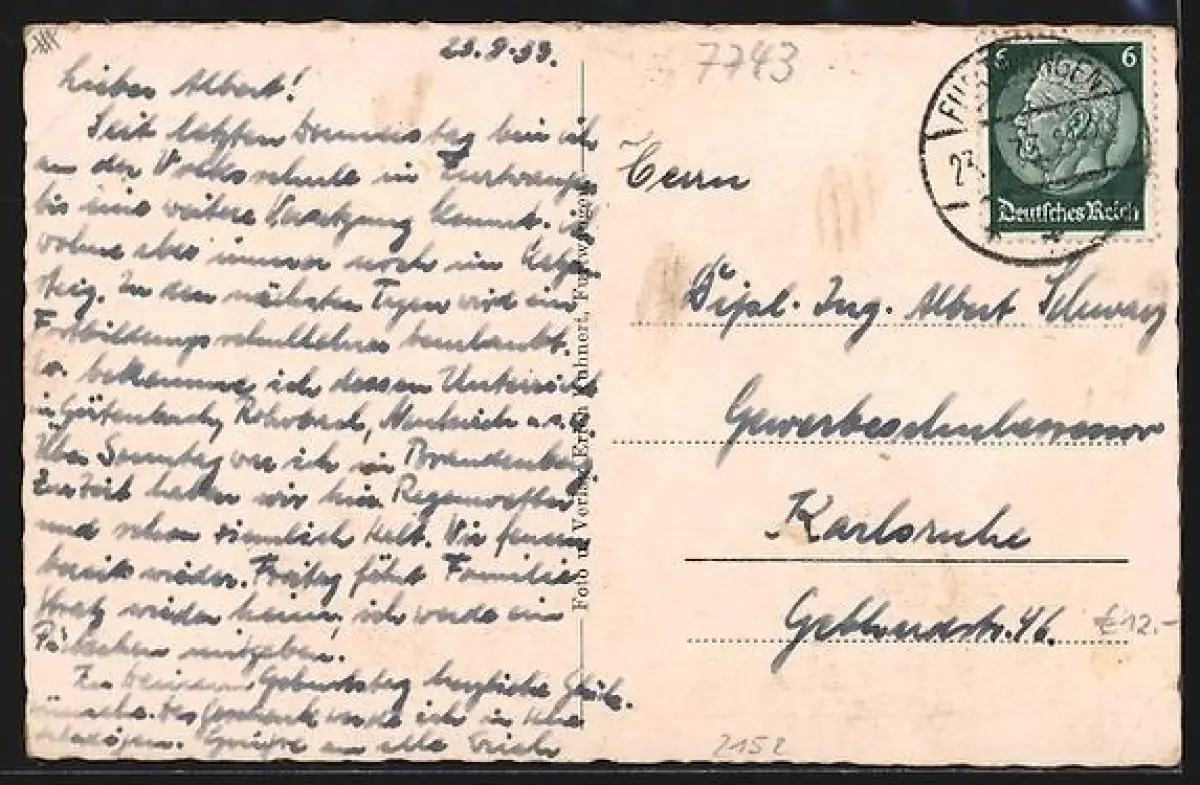 23.9.39.
Lieber Albert!
Seit letzten Donnerstag bin ich
an der Volksschule in Furtwangen
bis eine weitere Versetzung kommt. ich
wohne aber immer noch im Katzen
steig. In den nächsten Tagen wird ein
Fortbildungsschullehrer beurlaubt.
So bekomme ich dessen Unterricht
in Gütenbach, Rohrbach, Neukirch u.s.w.
Über Sonntag war ich in Brandenberg.
Zur Zeit haben wir hier Regenwetter
und schon ziemlich kalt. Wir feuern
bereits wieder. Freitag fährt Familie
wieder heim, ich werde ein
Päckchen mitgeben.
Zu Deinem Geburtstag herzliche Glück-
wünsche. Das Geschenk werde ich in
Grüsse an alle Erich
Foto u. Verlag Erich Kuhnert, Furtwangen
7743
6 6
Deutsches Reich
FURTWANGEN
23.
Herrn
Dipl. Ing. Albert Schwarz
Gewerbeschulassessor
Karlsruhe
46.
€12.-
2152